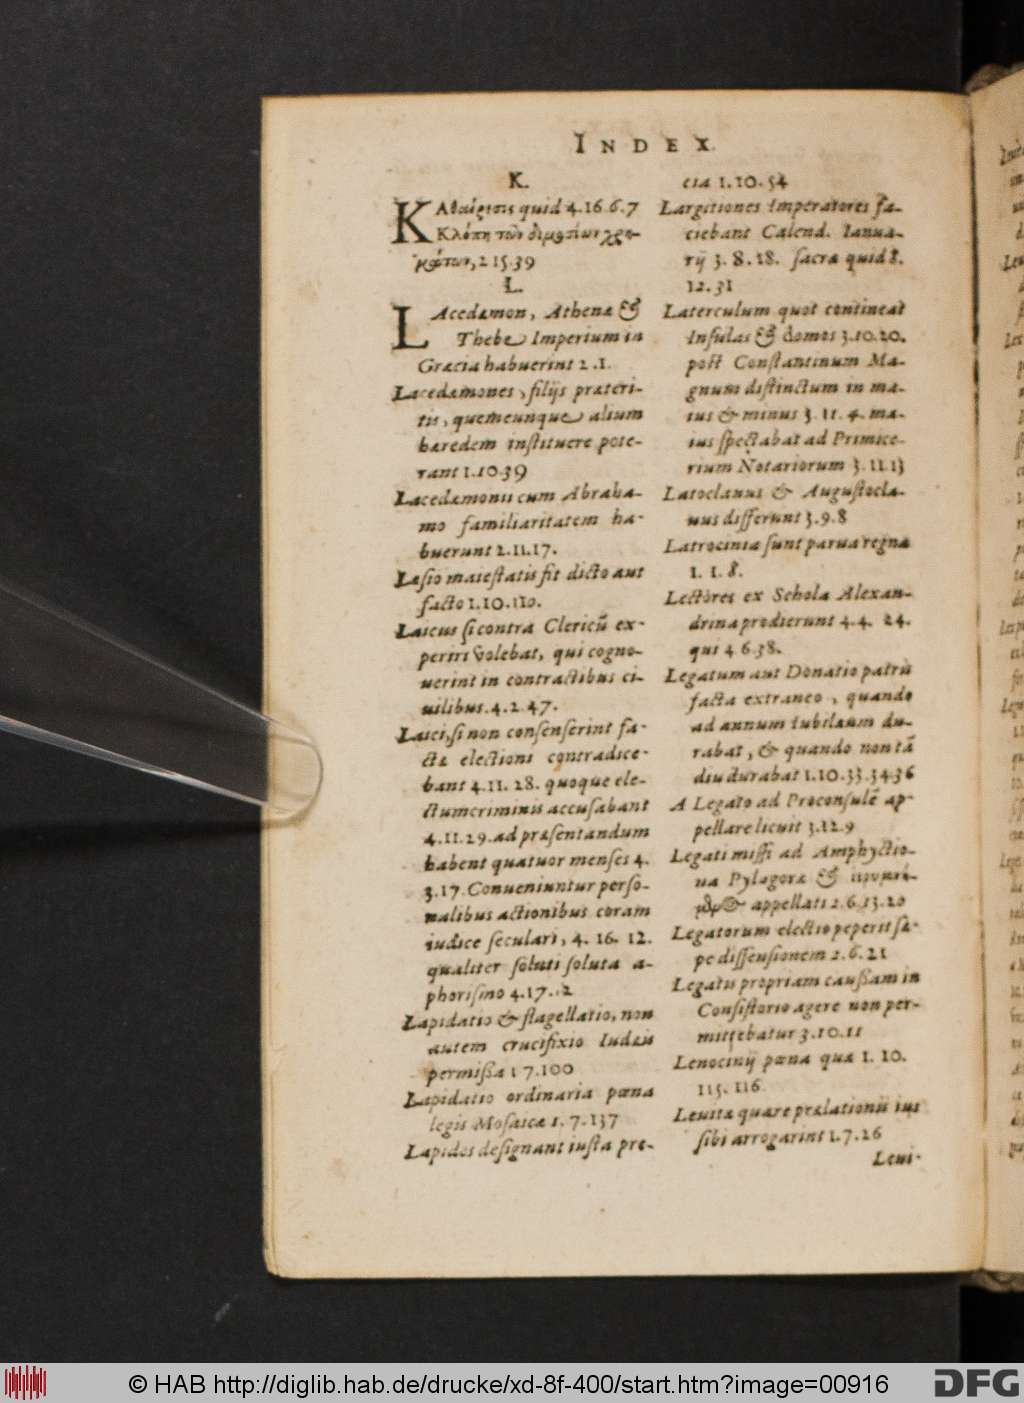 INDEX
K.
KAθαίρεσις quid 4.16.6.7
Κλόπη τῶν δημοσίων χρη-
μάτων, 2 15.39
L.
LAcedæmon, Athenæ &
Thebę Imperium in
Græcia habuerint 2.1.
Lacedæmones, filijs præteri-
tis, quemcunque alium
hæredem instituere pote-
rant 1.10.39
Lacedæmonii cum Abraha-
mo familiaritatem ha-
buerunt 2.11.17.
Læsio maiestatis fit dicto aut
facto 1.10.110.
Laicus si contra Clericū ex-
periri volebat, qui cogno-
uerint in contractibus ci-
uilibus. 4.2.47.
Laici, si non consenserint fa-
ctæ electioni contradice-
bant 4.11. 28. quoque ele-
ctum criminis accusabant
4.11.29. ad præsentandum
habent quatuor menses 4.
3.17. Conueniuntur perso-
nalibus actionibus coram
iudice seculari, 4. 16. 12.
qualiter soluti soluta a-
phorismo 4.17.
Lapidatio & flagellatio, non
autem crucifixio Iudæis
permißa 1 7.100
Lapidatio ordinaria pœna
legis Mosaicæ 1. 7.137
Lapides designant iusta pre-
cia 1.10.54
Largitiones Imperatores fa-
ciebant Calend. Ianua-
rij 3. 8. 18. sacræ quid 8.
12.31
Laterculum quot contineat
Insulas & domos 3.10.20.
post Constantinum Ma-
gnum distinctum in ma-
ius & minus 3. 11. 4. ma-
ius spectabat ad Primice-
rium Notariorum 3.11.13
Latoclauus & Augustocla-
uus differunt 3.9.8
Latrocinia sunt parua regna
1. 1. 8.
Lectores ex Schola Alexan-
drina prodierunt 4.4. 24.
qui 4 6.38.
Legatum aut Donatio patrũ
facta extraneo, quando
ad annum iubilæum du-
rabat, & quando non tã
diu durabat 1.10.33.34.36
A Legato ad Proconsulē ap-
pellare licuit 3.12.9
Legati missi ad Amphyctio-
na Pylagoræ &
appellati 2.6.13.20
Legatorum electio peperit sæ-
pe dissensionem 2.6.21
Legatis propriam caußam in
Consistorio agere non per-
mittebatur 3.10.11
Lenocinij pœna quæ 1. 10.
115. 116.
Leuitæ quare prælationis ius
sibi arrogarint 1.7.26
Leui-
© HAB http://diglib.hab.de/drucke/xd-8f-400/start.htm?image=00916
DFG